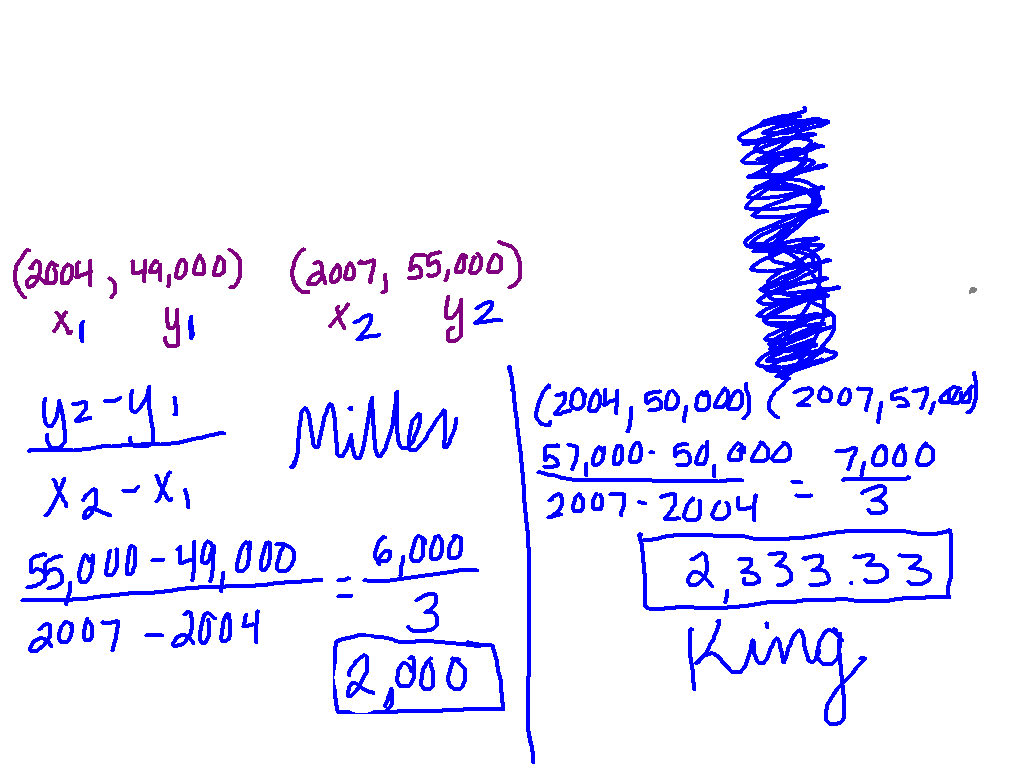 (2004, 49,000) (2007, 55,000)
x1 y1 x2 y2
y2-y1
x2-x1
Miller
55,000-49,000 = 6,000
2007-2004 3
2,000
(2004, 50,000) (2007, 57,000)
57,000-50,000 = 7,000
2007-2004 3
2,333.33
King